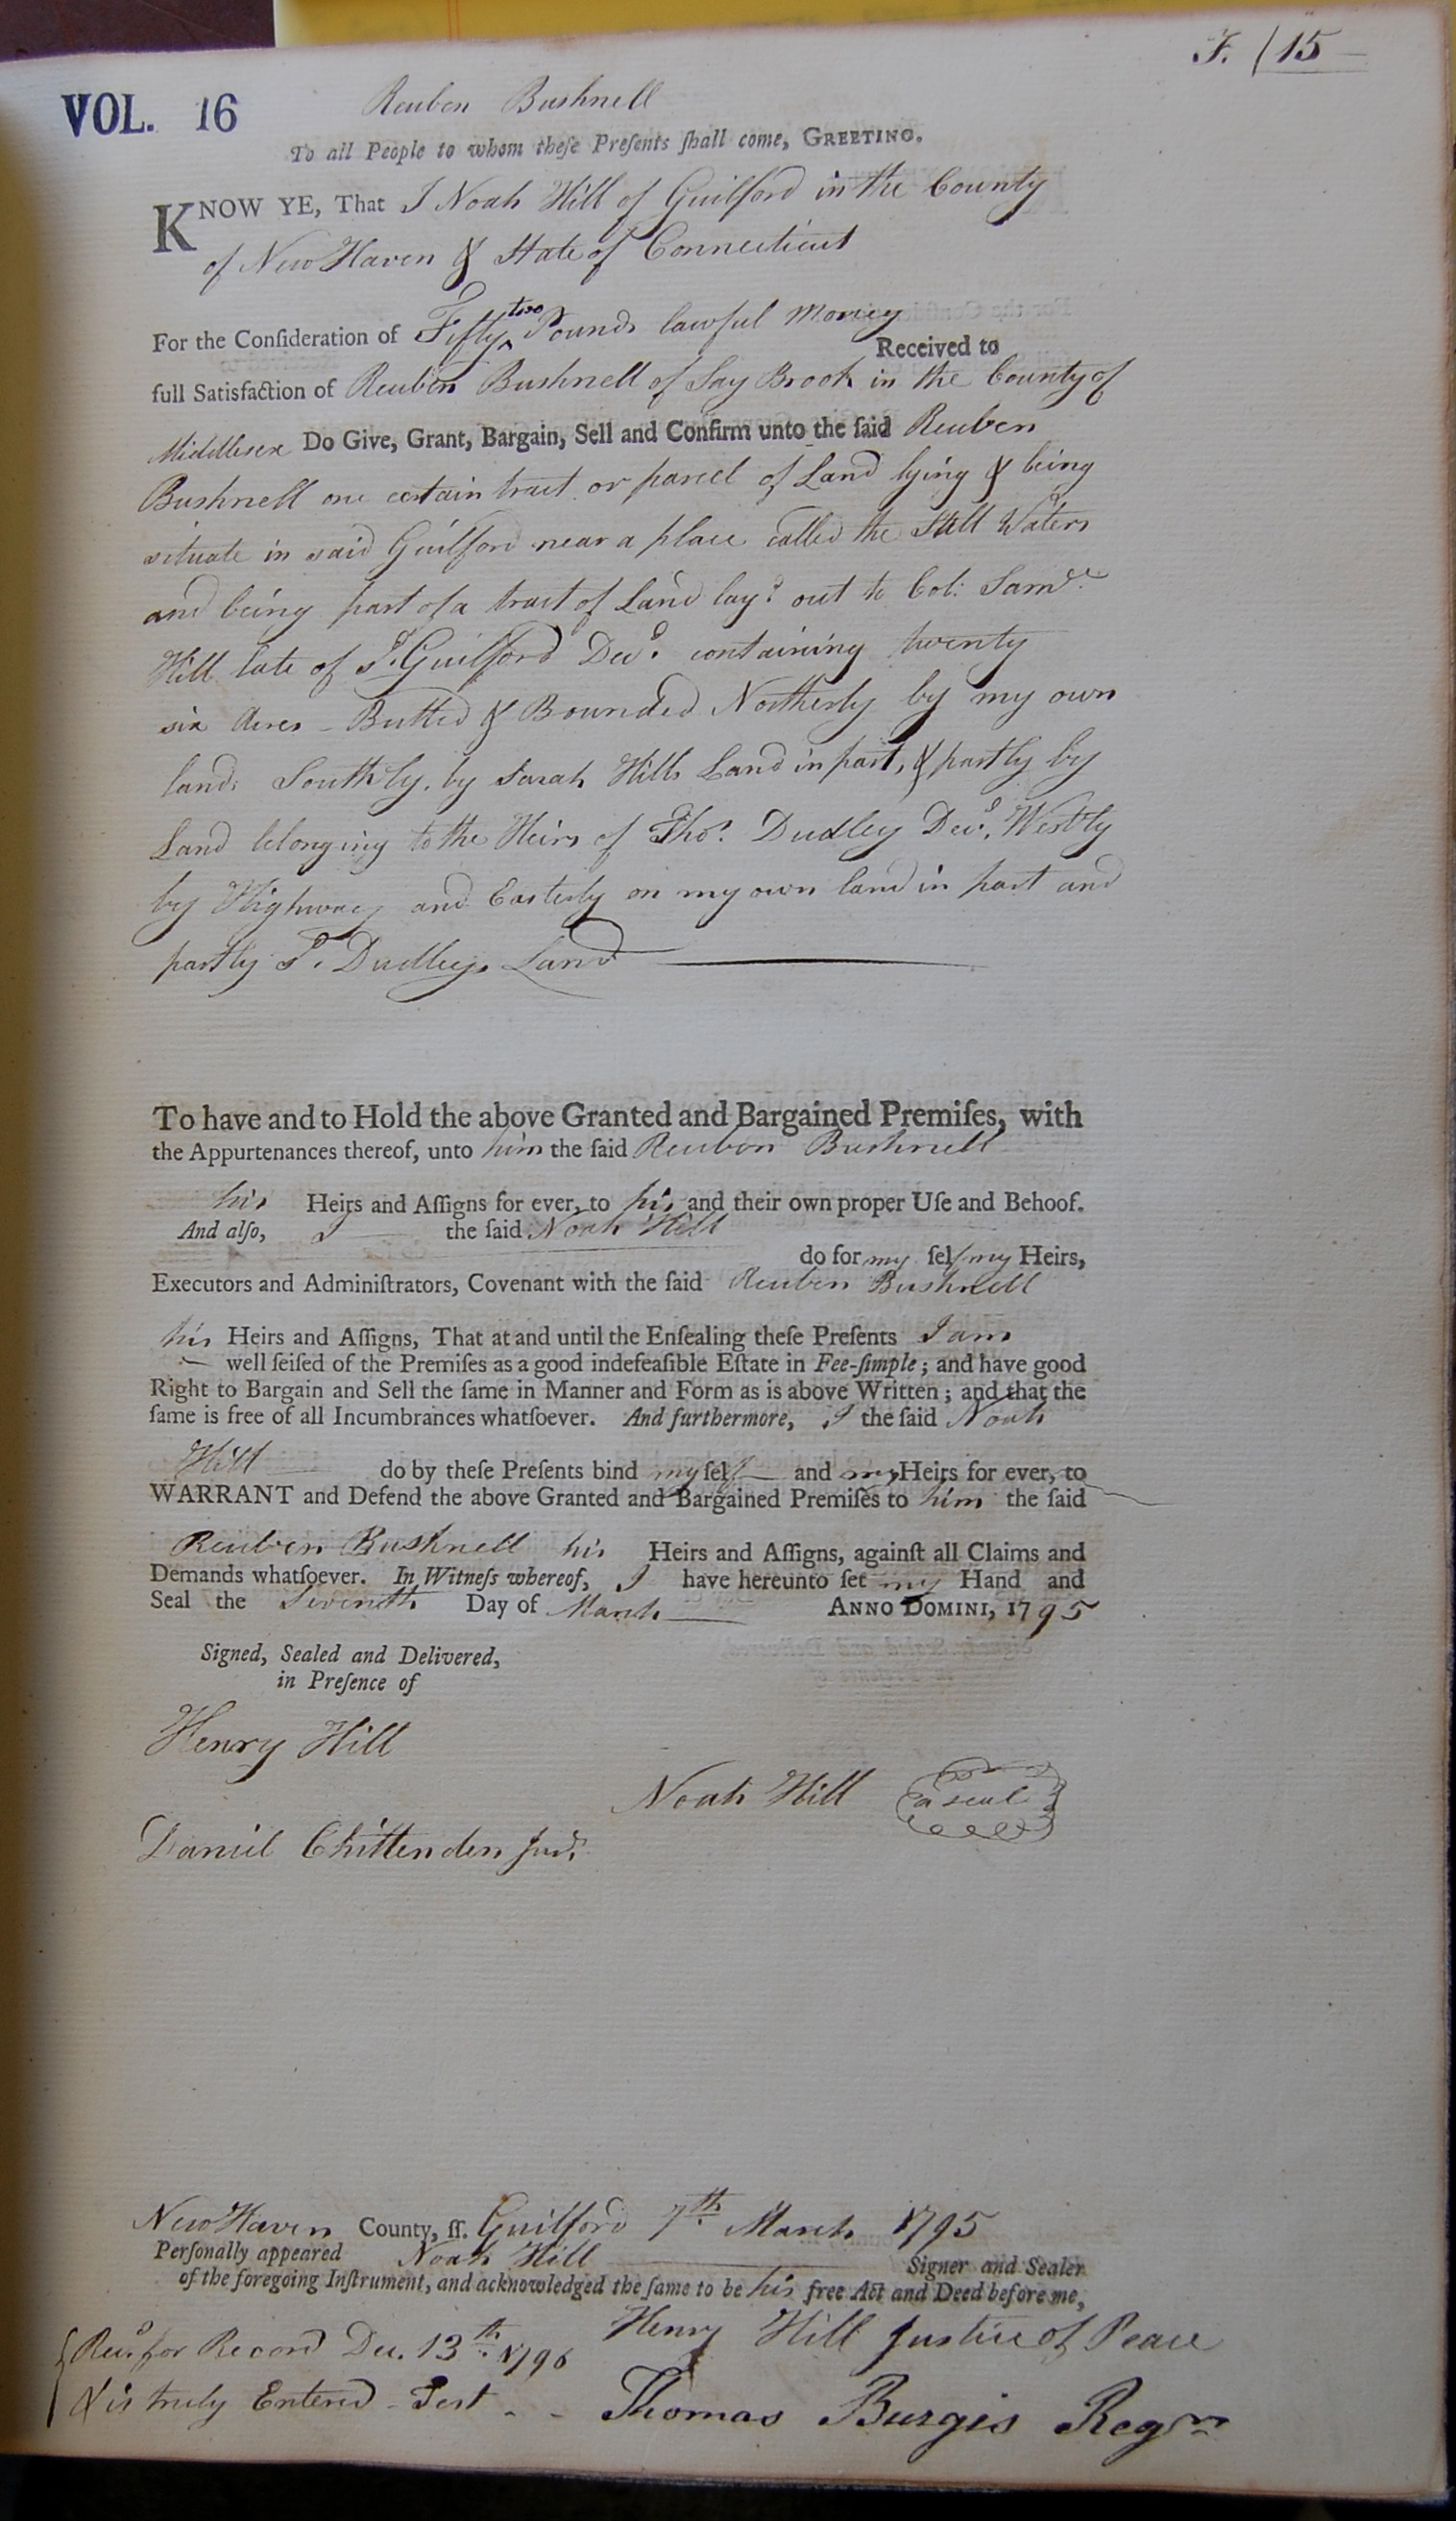 F. / 15
VOL. 16
Reuben Bushnell
To all People to whom theſe Preſents ſhall come, GREETING.
KNOW YE, That I Noah Hill of Guilford in the County
of New Haven & State of Connecticut
For the Conſideration of Fifty ^two Pounds lawful Money
Received to
full Satisfaction of Reuben Bushnell of Say Brook in the County of
Middlesex Do Give, Grant, Bargain, Sell and Confirm unto the ſaid Reuben
Bushnell one certain tract or parcel of Land lying & being
situate in said Guilford near a place called the Still Waters
and being part of a tract of Land layd out to Col: Saml
Hill late of sd. Guilford Decd. containing twenty
six Acres - Butted & Bounded Northerly by my own
land: Southly. by Sarah Hills Land in part, & partly by
Land belonging to the Heirs of Thos. Dudley Decd. Westly
by Highway and Easterly on my own land in part and
partly sd. Dudleys Land
To have and to Hold the above Granted and Bargained Premiſes, with
the Appurtenances thereof, unto him the ſaid Reuben Bushnell
his Heirs and Aſſigns for ever, to his and their own proper Uſe and Behoof.
And alſo, I the ſaid Noah Hill
do for my ſelf my Heirs,
Executors and Adminiſtrators, Covenant with the ſaid Reuben Bushnell
his Heirs and Aſſigns, That at and until the Enſealing theſe Preſents I am
well ſeiſed of the Premiſes as a good indefeaſible Eſtate in Fee-ſimple; and have good
Right to Bargain and Sell the ſame in Manner and Form as is above Written; and that the
ſame is free of all Incumbrances whatſoever. And furthermore, I the ſaid Noah
Hill do by theſe Preſents bind my ſelf and my Heirs for ever, to
WARRANT and Defend the above Granted and Bargained Premiſes to him the ſaid
Reuben Bushnell his Heirs and Aſſigns, againſt all Claims and
Demands whatſoever. In Witneſs whereof, I have hereunto ſet my Hand and
Seal the Seventh Day of March ANNO DOMINI, 1795
Signed, Sealed and Delivered,
in Preſence of
Henry Hill
Noah Hill a seal
Daniel Chittenden Junr.
New Haven County, ſſ. Guilford 7th March 1795
Perſonally appeared Noah Hill Signer and Sealer
of the foregoing Inſtrument, and acknowledged the ſame to be his free Act and Deed before me,
Henry Hill Justice of Peace
Recd. for Record Dec. 13th 1796
& is truly Entered - Test - - Thomas Burgis Regr